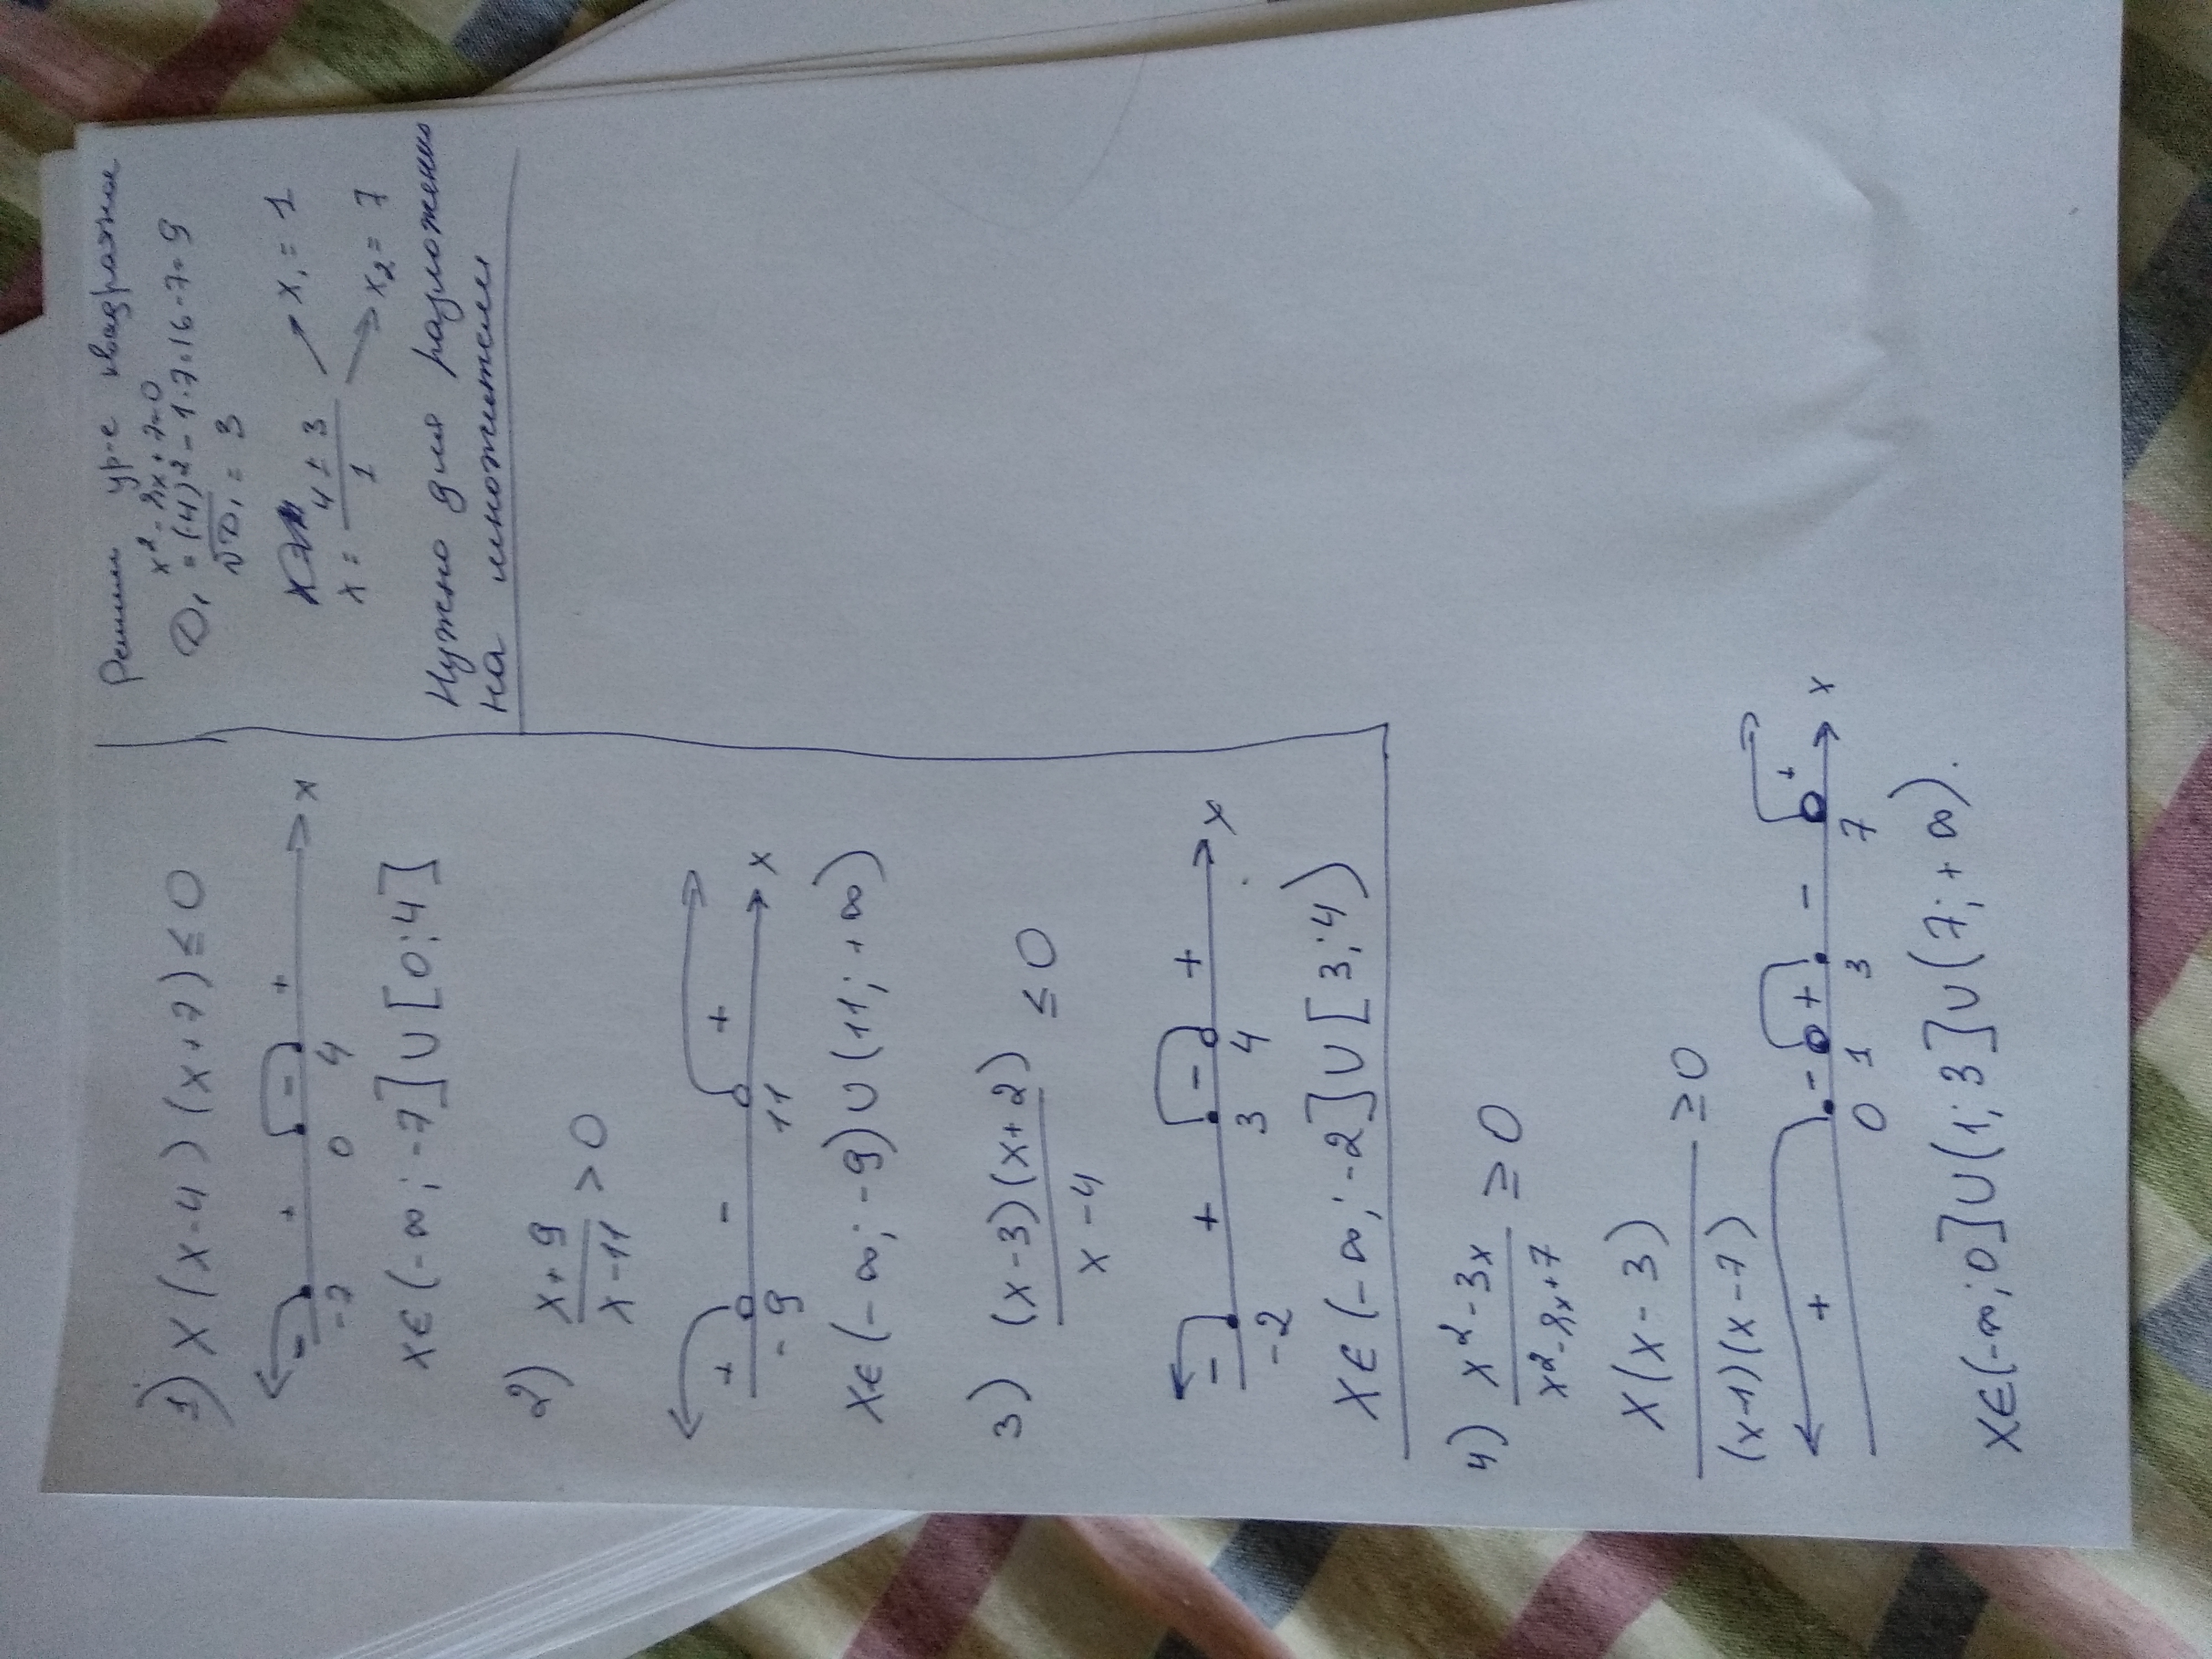 1) x(x-4)(x+7)≤0
- + - + x
-7 0 4
x∈(-∞;-7]∪[0;4]
2) x+9 / x-11 >0
+ - + x
-9 11
x∈(-∞;-9)∪(11;+∞)
3) (x-3)(x+2) / x-4 ≤0
- + - + x
-2 3 4
x∈(-∞;-2]∪[3;4)
4) x²-3x / x²-8x+7 ≥0
x(x-3) / (x-1)(x-7) ≥0
+ - + - + x
0 1 3 7
x∈(-∞;0]∪(1;3]∪(7;+∞).
Решим ур-е квадратное
x²-8x+7=0
D₁=(-4)²-1·7=16-7=9
√D₁=3
x= 4±3 / 1
x₁=1
x₂=7
Нужно для разложения
на множители